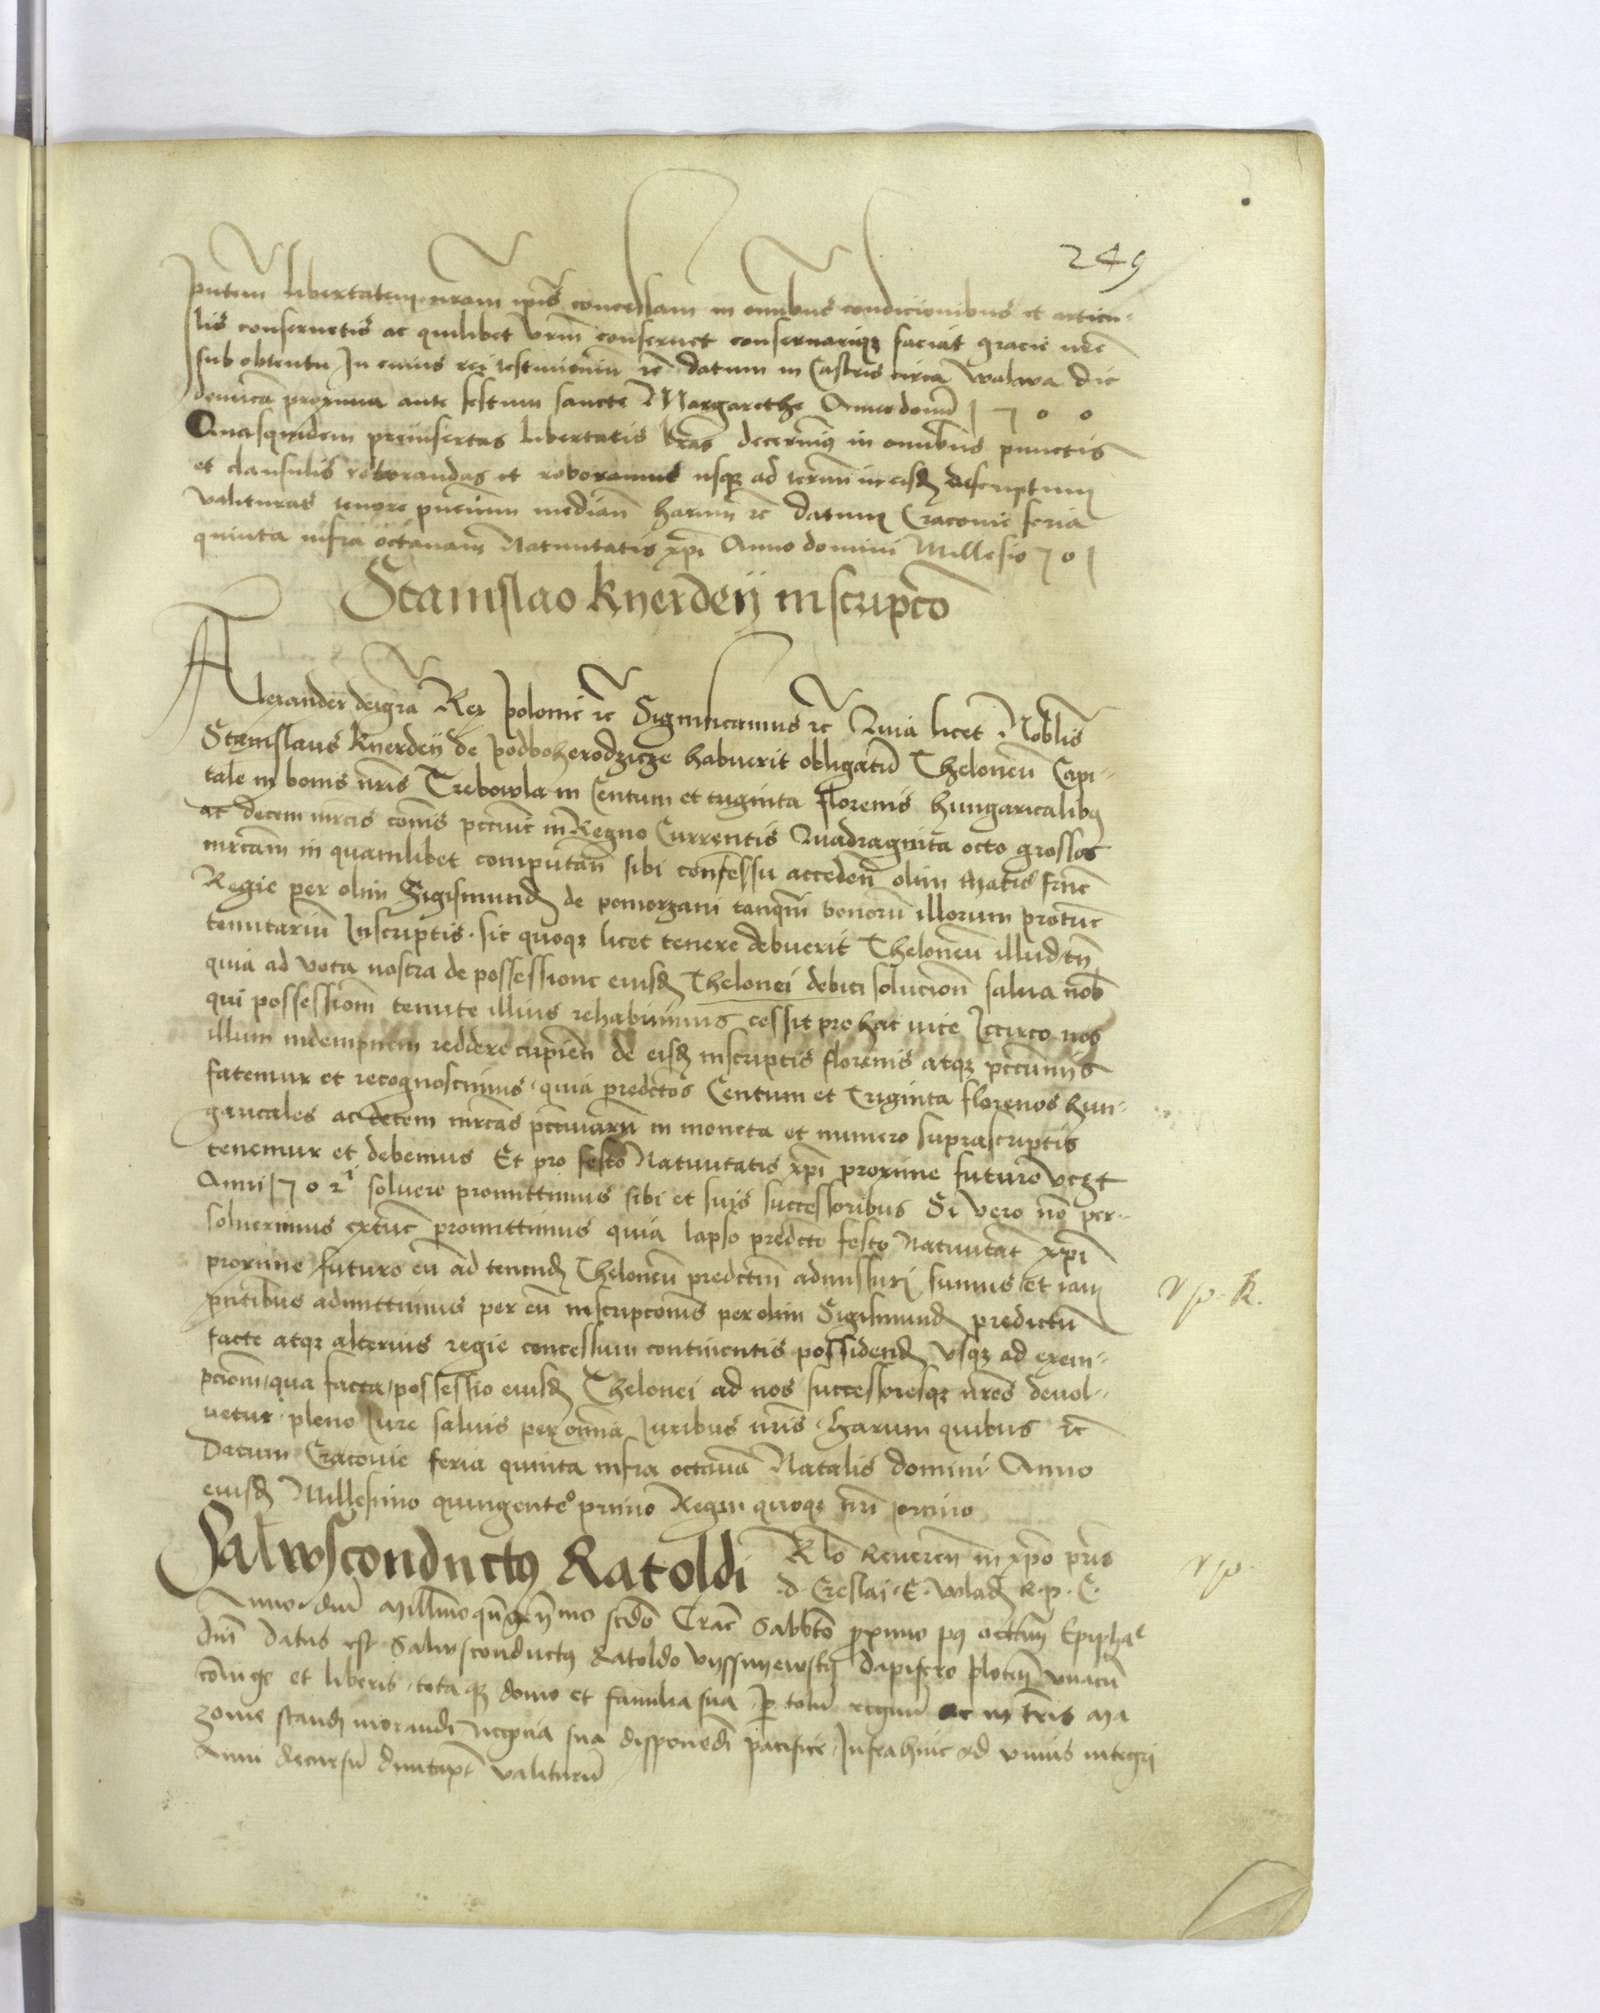 249
pntem libertatem nram ipis concessam in omnibus condicionibus et articu-
lis conservetis ac quilibet vrm conservet conservarique faciat gracie nre
sub obtentu In cuius rei testimonium rc datum in Castris circa Walawa die
domica proxima ante festum sancte Margarethe Anno domi 1 7 0 0
Quasquidem preinsertas libertatis lras decernimus in omnibus punctis
et clausulis roborandas et roboramus usque ad termm in eisdem descriptum
valituras tenore pncium median harum rc datum Cracovie feria
quinta infra octavam Nativitatis xpi Anno domini Millesio 7 0 1
Stanislao Knerdeÿ inscripcio
Alexander dei gra Rex Polonie rc Significamus rc Quia licet Nobilis
Stanislaus Knerdeÿ de podboherodzicze habuerit obligatum Theloneum Capi-
tale in bonis nris Trebowla in Centum et triginta florenis hungaricalibus
ac decem mrcis comis peccunie in Regno Currentis Quadraginta octo grossos
mrcam in quamlibet computan sibi consessu acceden olim Matis frnē
Regie per olim Sigismundum de pomorzani tanquam bonorum illorum protunc
tenutarium Inscriptis sic quoque licet tenere debuerit Theloneum illud tn
quia ad vota nostra de possessione eiusdem Thelonei debiti solucione salva nob
qui possessionem tenute illius rehabuimus cessit pro hac vice Iccirco nos
illum indempnem reddere cupien de eisdem inscriptis florenis atque peccuniis
fatemur et recognoscimus quia predictos Centum et Triginta florenos hun-
garicales ac decem mrcas peccuniarum in moneta et numero suprascriptis
tenemur et debemus Et pro festo Nativitatis xpi proxime futuro vczt
Anni 1 7 0 2i solvere promittimus sibi et suis successoribus Si vero non per-
solverimus extunc promittimus quia lapso predicto festo Nativitat xpi
proxime futuro eum ad tenend Theloneum predictum admissuri sumus et iam
pntibus admittimus per eum inscripcionis per olim Sigismundum predictum
facte atque alterius regie concessum continentis possidend usque ad exem-
pcionem qua facta possessio eiusdem Thelonei ad nos successoresque nros devol-
vetur pleno Iure salvis per omnia Iuribus nris harum quibus rc
Datum Cracovie feria quinta infra octavam Natalis domini Anno
eiusdem Millesimo quingentesimo primo Regni quoque nri primo
Salwsconductus Ratoldi Rlo Reveren in xpo pris
d Creslai E Wlad R p C
Anno dni Millmo qngen mo scdo Crac Sabbto proximo post octavam Epiphaē
dni datus est Salwsconductus Ratoldo Vyssinyewsky dapifero plocen unacum
coniuge et liberis totaque domo et familia sua per totum regnum ac in terris Ma
zovie standi morandi negocia sua disponedi pacifice Infrahinc ad unius integri
anni decursum duntaxat valiturum
r p R.
r p